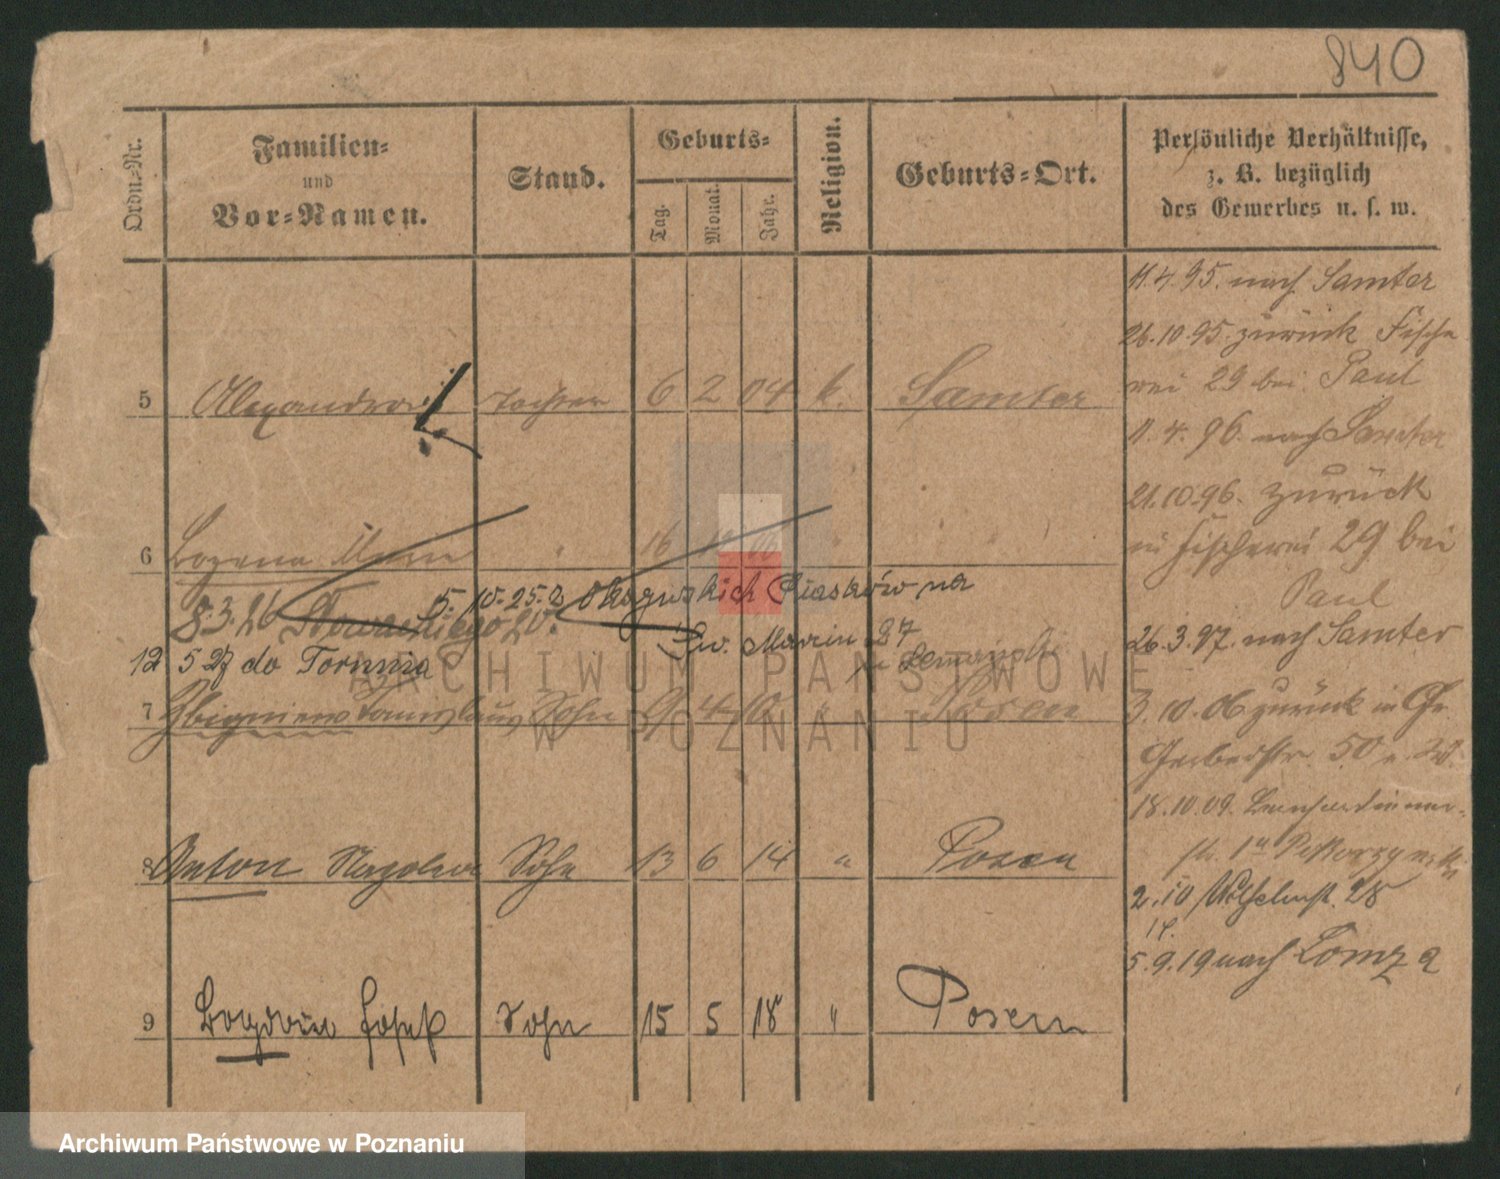 840
Ordn.-Nr.
Familien-
und
Vor-Namen.
Stand.
Geburts-
Tag.
Monat.
Jahr.
Religion.
Geburts-Ort.
Persönliche Verhältnisse,
z. B. bezüglich
des Gewerbes u. s. w.
11.4.95. nach Samter
26.10.95. zurück Fische
rei 29 bei Paul
5 Tochter 6 2 04 k. Samter
11.4.96. nach Samter
21.10.96. zurück
in Fischerei 29 bei
Paul
6 Bozena " 16
5.10.25. z na
8.3.26 Słowackiego 20.
Św. Marcin
12 5 27 do Torunia
26.3.97. nach Samter
7 Zbigniew Sohn 4 " Posen
3.10.06 zurück in Gr.
Gerberstr. 50
18.10.09.
8 Anton Sohn 13 6 14 " Posen
2.10 Wilhelmst. 28
14.
5.9.19 nach Lomza
9 Bogdan Josef Sohn 15 5 18 " Posen
ARCHIWUM PAŃSTWOWE
W POZNANIU
Archiwum Państwowe w Poznaniu